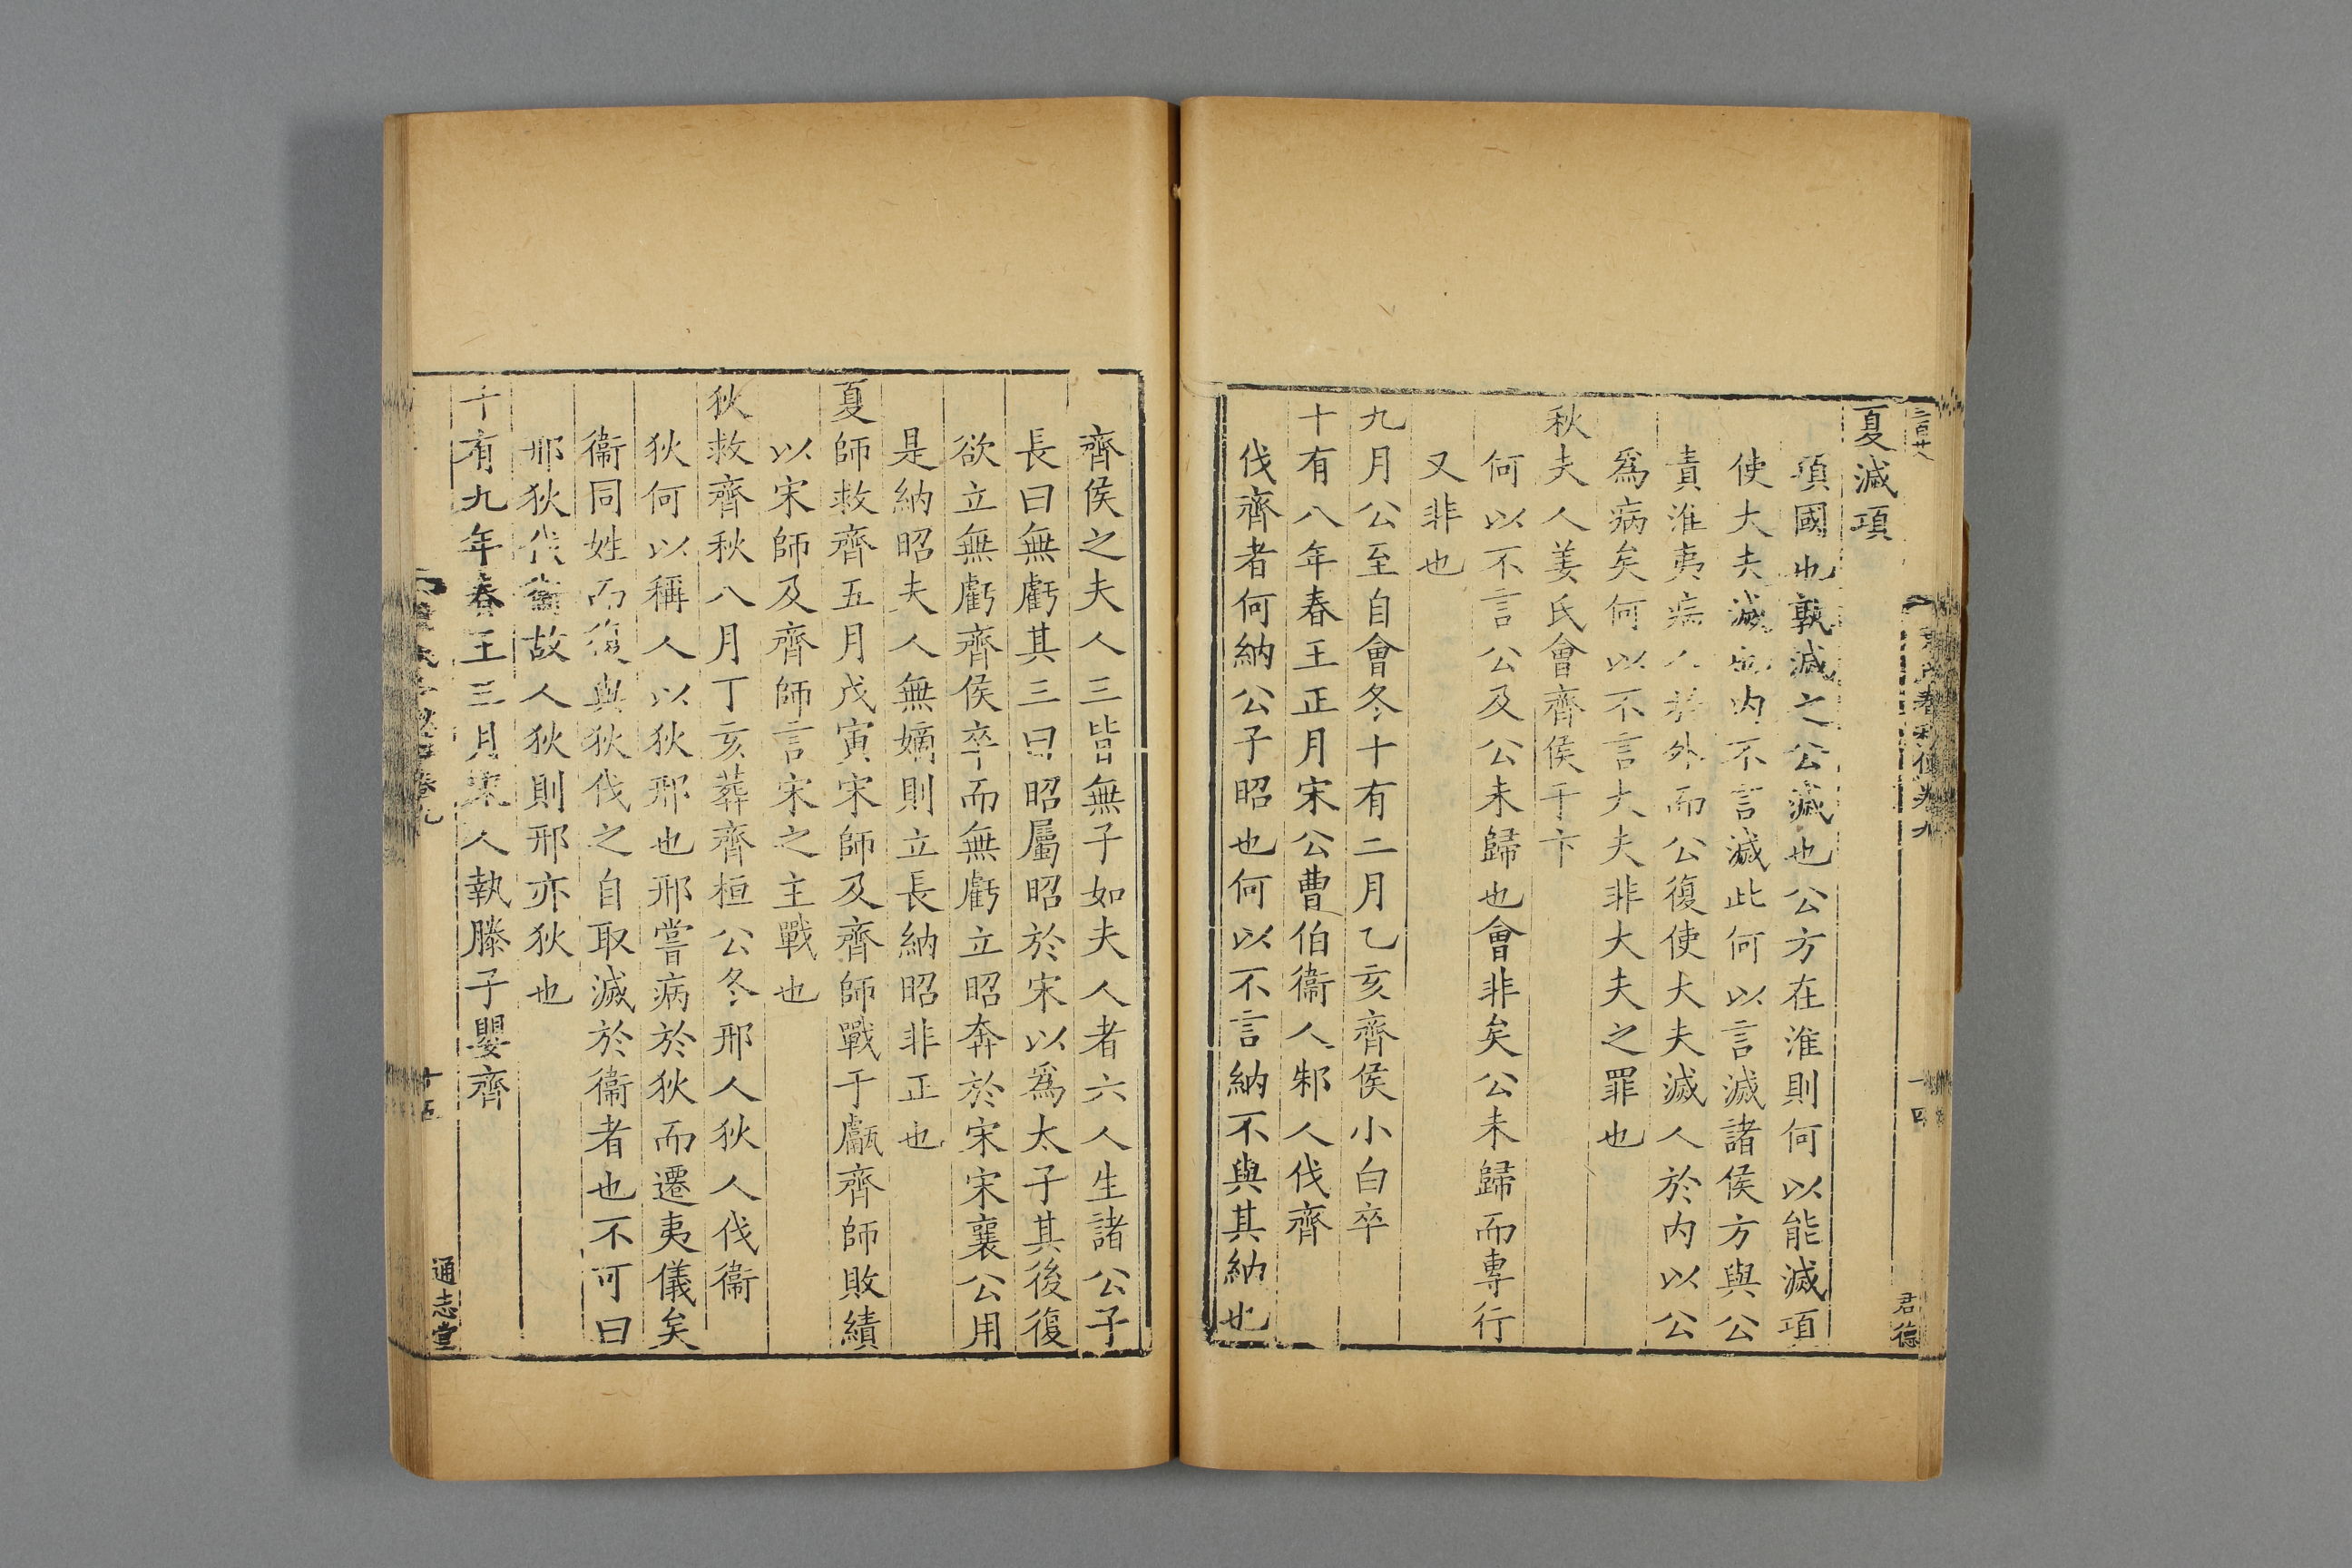 夏滅項
項國也孰滅之公滅也公方在淮則何以能滅項
使大夫滅也内不言滅此何以言滅諸侯方與公
責淮夷病人於外而公復使大夫滅人於内以公
爲病矣何以不言大夫非大夫之罪也
秋夫人姜氏會齊侯于卞
何以不言公及公未歸也會非矣公未歸而專行
又非也
九月公至自會冬十有二月乙亥齊侯小白卒
十有八年春王正月宋公曹伯衞人邾人伐齊
伐齊者何納公子昭也何以不言納不與其納也
齊侯之夫人三皆無子如夫人者六人生諸公子
長曰無虧其三曰昭屬昭於宋以爲太子其後復
欲立無虧齊侯卒而無虧立昭奔於宋宋襄公用
是納昭夫人無嫡則立長納昭非正也
夏師救齊五月戊寅宋師及齊師戰于甗齊師敗績
以宋師及齊師言宋之主戰也
狄救齊秋八月丁亥葬齊桓公冬邢人狄人伐衞
狄何以稱人以狄邢也邢嘗病於狄而遷夷儀矣
衞同姓而復與狄伐之自取滅於衞者也不可曰
邢狄伐衞故人狄則邢亦狄也
十有九年春王三月宋人執滕子嬰齊
通志堂
君德